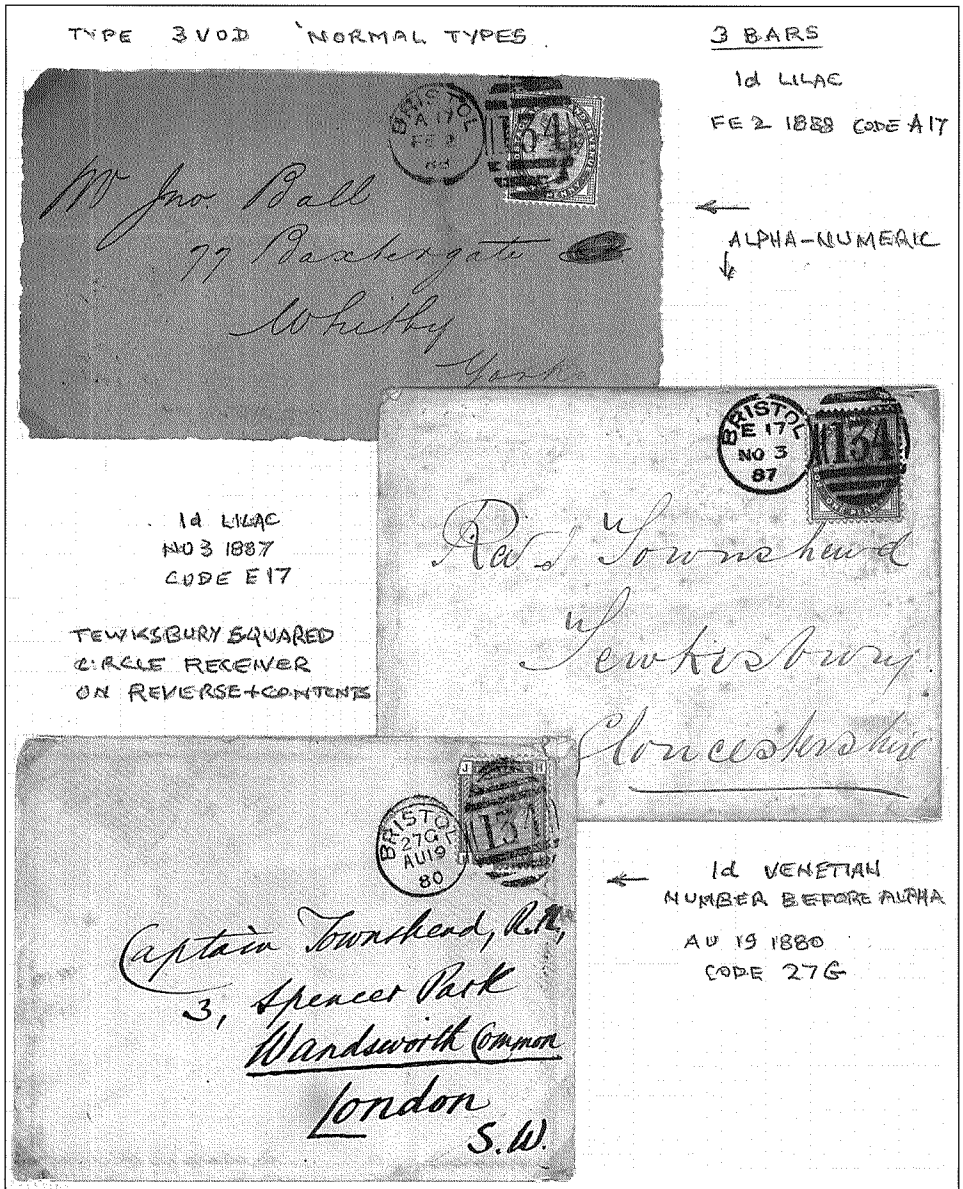 TYPE 3VOD 'NORMAL TYPES
3 BARS
1d LILAC
FE 2 1888 CODE A17
BRISTOL
A 17
FE 2
88
134
Mr Jno. Ball
77 Baxtergate
Whitby
Yorks
ALPHA-NUMERIC
BRISTOL
E 17
NO 3
87
134
1d LILAC
NO 3 1887
CODE E17
TEWKSBURY SQUARED
CIRCLE RECEIVER
ON REVERSE+CONTENTS
Revd Townshend
Tewkesbury.
Gloucestershire
J H
BRISTOL
27G
AU19
80
134
1d VENETIAN
NUMBER BEFORE ALPHA
AU 19 1880
CODE 27G
Captain Townshend, R.N.,
3, Spencer Park
Wandsworth Common
London
S.W.